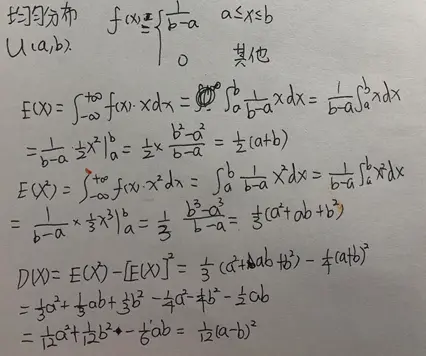 均匀分布 f(x) = { 1/(b-a) a≤x≤b
U(a,b). 0 其他
E(X) = ∫_{-∞}^{+∞} f(x)·x dx = ∫_a^b 1/(b-a) x dx = 1/(b-a) ∫_a^b x dx
= 1/(b-a) · 1/2 x² |_a^b = 1/2 × (b²-a²)/(b-a) = 1/2 (a+b)
E(X²) = ∫_{-∞}^{+∞} f(x)·x² dx = ∫_a^b 1/(b-a) x² dx = 1/(b-a) ∫_a^b x² dx
= 1/(b-a) × 1/3 x³ |_a^b = 1/3 (b³-a³)/(b-a) = 1/3 (a²+ab+b²)
D(X) = E(X²) - [E(X)]² = 1/3 (a²+ab+b²) - 1/4 (a+b)²
= 1/3 a² + 1/3 ab + 1/3 b² - 1/4 a² - 1/4 b² - 1/2 ab
= 1/12 a² + 1/12 b² - 1/6 ab = 1/12 (a-b)²